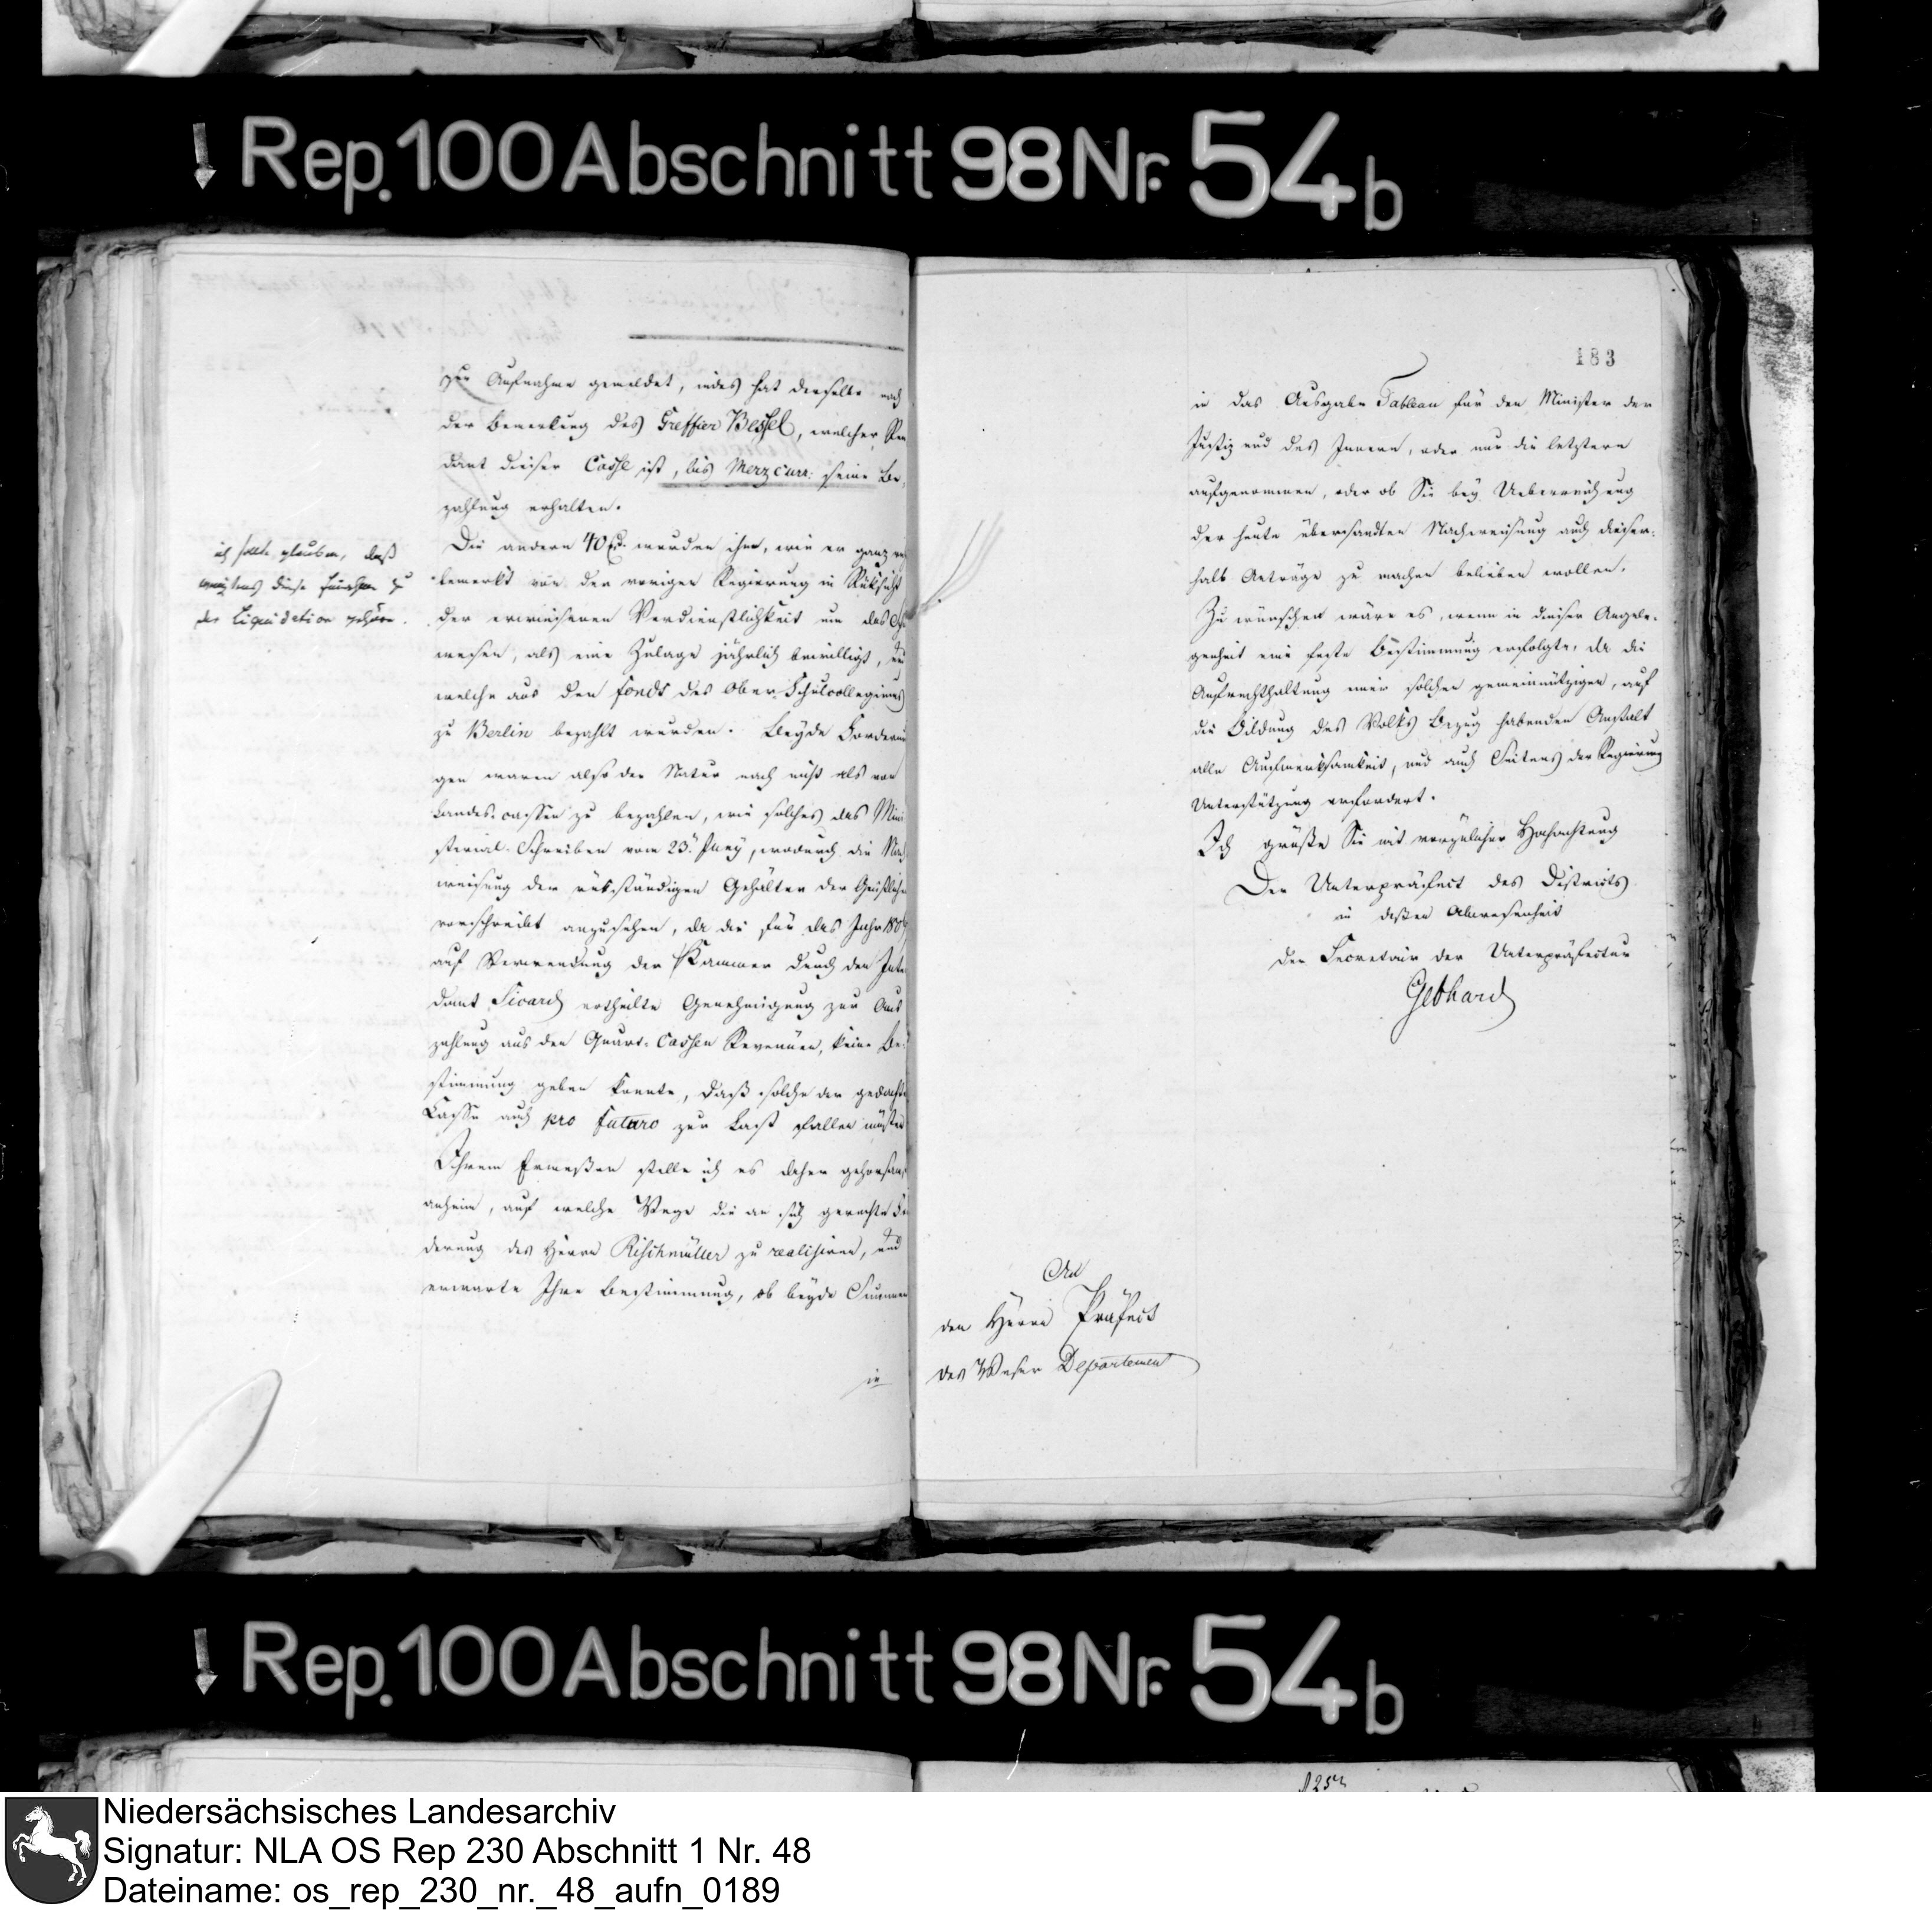 Rep. 100 Abschnitt 98 Nr. 54b
zur Aufnahme gemeldet, indes hat derselbe nach
der Bemerkung des Greffier Bessel, welcher Ren
dant dieser Casse ist, bis Merz curr: seine Be-
zahlung erhalten.
Die andern 40 rt. wurden ihm, wie er ganz
bemerkt von der vorigen Regierung in Rüksicht
der erwiesenen Verdienstlichkeit um das
wesen, als eine Zulage jährlich bewilligt,
welche aus den fonds des Ober-Schulcollegiums
zu Berlin bezahlt wurden. Beyde Forderun
gen waren also der Natur nach nicht als von
Landes-cassen zu bezahlen, wie solches das Mini
sterial-Schreiben vom 23. Juny, wodurch die Nach
weisung der rükständigen Gehälter der Geistlichen
vorschreibt anzusehen, da die für das Jahr 180
auf Verwendung der Kammer durch den Inten
dant Sicard ertheilte Genehmigung zur Aus
zahlung aus den Quart-Cassen Revenüen, keine Be-
stimmung geben konnte, daß solche der gedachten
Casse auch pro futuro zur Last fallen müsten
Ihrem Ermeßen stelle ich es daher gehorsamst
anheim, auf welche Wege die an sich gerechte For
derung des Herrn Rischmüller zu realisiren, und
erwarte Ihre Bestimmung, ob beyde Summen
in
ich sollte glauben, daß
wenigstens diese zu
der Liquidation gehöre.
183
in das Ausgabe Tableau für den Minister der
Justiz und des Innern, oder nur die letztern
aufgenommen, oder ob Sie bey Ueberreichung
der heute übersandten Nachweisung auch dieser-
halb Anträge zu machen belieben wollen.
Zu wünschen wäre es, wenn in dieser Angele-
genheit eine feste Bestimmung erfolgte, da die
Aufrechthaltung einer solchen gemeinnützigen, auf
die Bildung des Volks Bezug habenden Anstalt
alle Aufmerksamkeit, und auch Seitens der Regierung
Unterstützung erfordert.
Ich grüße Sie mit vorzüglicher Hochachtung
Der Unterpräfect des Districts
in deßen Abwesenheit
der Secretair der Unterpräfectur
Gebhard
An
den Herrn Präfect
des Weser Departement
Rep. 100 Abschnitt 98 Nr. 54b
Niedersächsisches Landesarchiv
Signatur: NLA OS Rep 230 Abschnitt 1 Nr. 48
Dateiname: os_rep_230_nr._48_aufn_0189